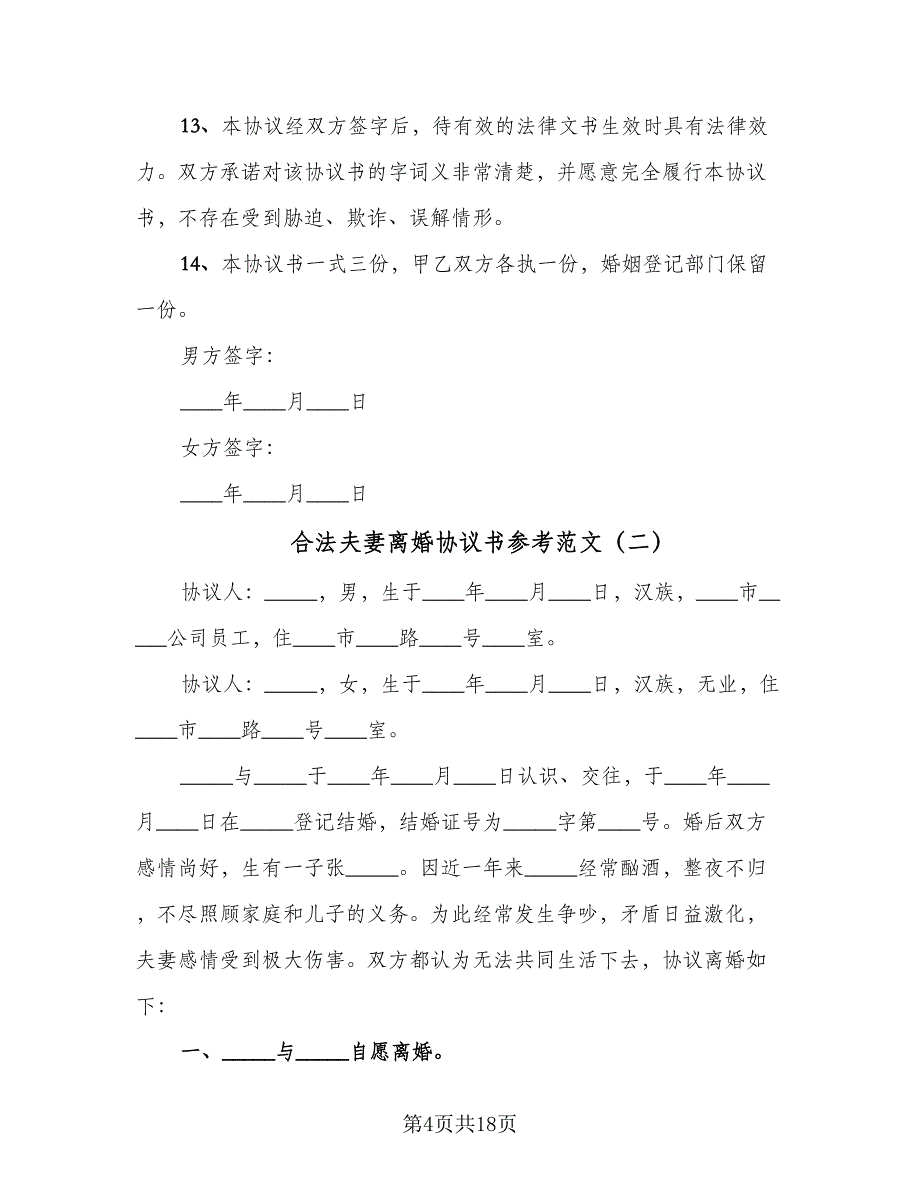 13、本协议经双方签字后，待有效的法律文书生效时具有法律效
力。双方承诺对该协议书的字词义非常清楚，并愿意完全履行本协议
书，不存在受到胁迫、欺诈、误解情形。
14、本协议书一式三份，甲乙双方各执一份，婚姻登记部门保留
一份。
男方签字：
____年____月____日
女方签字：
____年____月____日
合法夫妻离婚协议书参考范文（二）
协议人：_____，男，生于____年____月____日，汉族，____市__
___公司员工，住____市____路____号____室。
协议人：_____，女，生于____年____月____日，汉族，无业，住
____市____路____号____室。
_____与_____于____年____月____日认识、交往，于____年____
月____日在_____登记结婚，结婚证号为_____字第____号。婚后双方
感情尚好，生有一子张_____。因近一年来_____经常酗酒，整夜不归
，不尽照顾家庭和儿子的义务。为此经常发生争吵，矛盾日益激化，
夫妻感情受到极大伤害。双方都认为无法共同生活下去，协议离婚如
下：
一、_____与_____自愿离婚。
第4页共18页